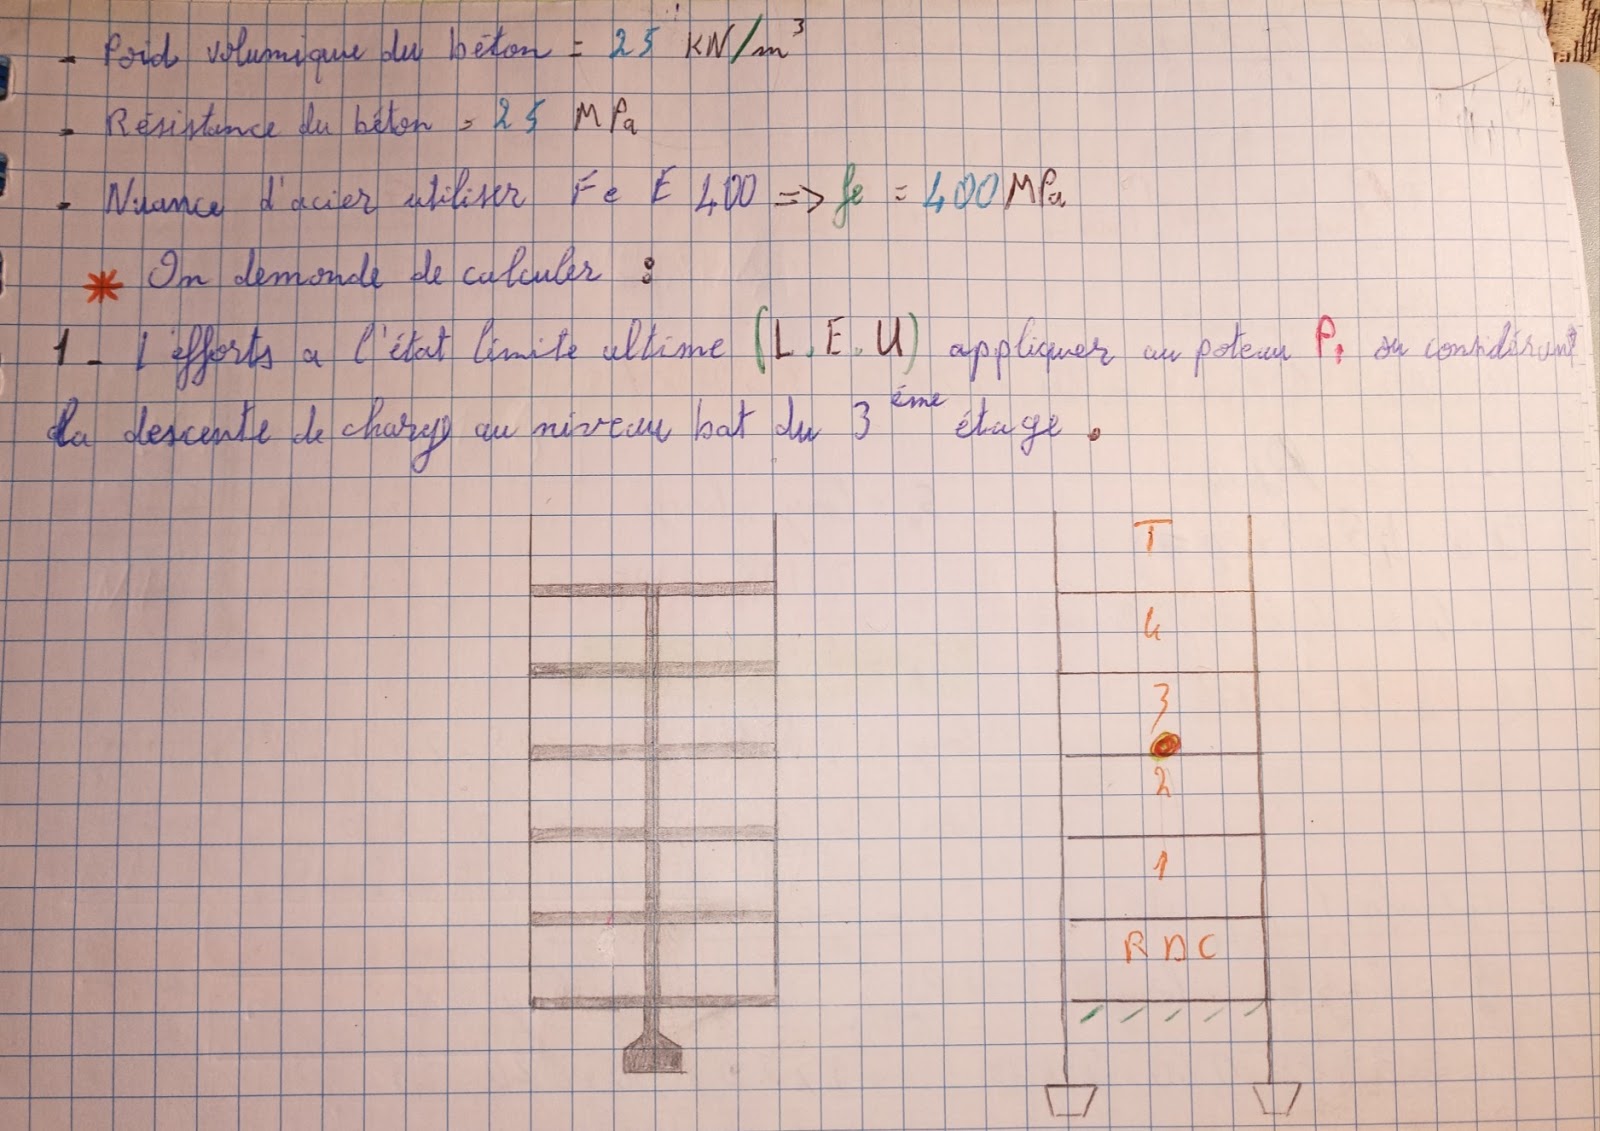 - Poid volumique du béton = 25 KN/m³
- Résistance du béton = 25 MPa
- Nuance d'acier utiliser Fe E 400 => fe = 400 MPa
* On demonde de calculer :
1 - l'efforts a l'état limite ultime (L.E.U) appliquer au poteau P1 ou considérant
la descente de charge au niveau bat du 3 éme étage .
T
4
3
2
1
RDC